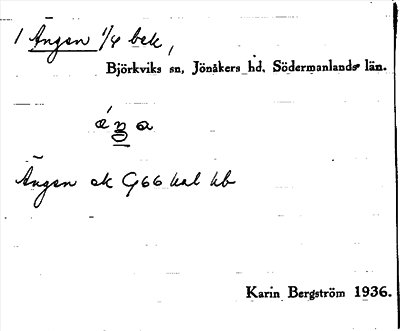 1 Ängen 1/4 bek,
Björkviks sn, Jönåkers hd, Södermanlands län.
Ängen ek G66 kal kb
Karin Bergström 1936.